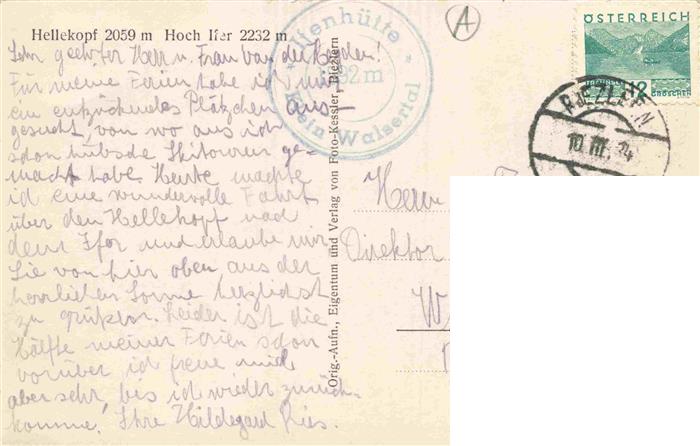 Hellekopf 2059 m Hoch Ifer 2232 m
Sehr geehrter Herr u. Frau van der
Für meine Ferien habe ich mir
ein entzückendes Plätzchen aus-
gesucht, von wo aus ich
schon hübsche Skitouren ge-
macht habe. Heute machte
ich eine wundervolle Fahrt
über den Hellekopf nach
dem Ifer und erlaube mir
Sie von hier oben aus der
herrlichen Sonne herzlichst
zu grüßen. Leider ist die
Hälfte meiner Ferien schon
vorüber ich freue mich
aber sehr, bis ich wieder zurück-
komme! Ihre Hildegard Ries.
Orig.-Aufn., Eigentum und Verlag von Foto-Kessler, Riezlern
Ifenhütte
Klein Walsertal
A
ÖSTERREICH
12
GROSCHEN
RIEZLERN
10 III 34
Herrn
Direktor